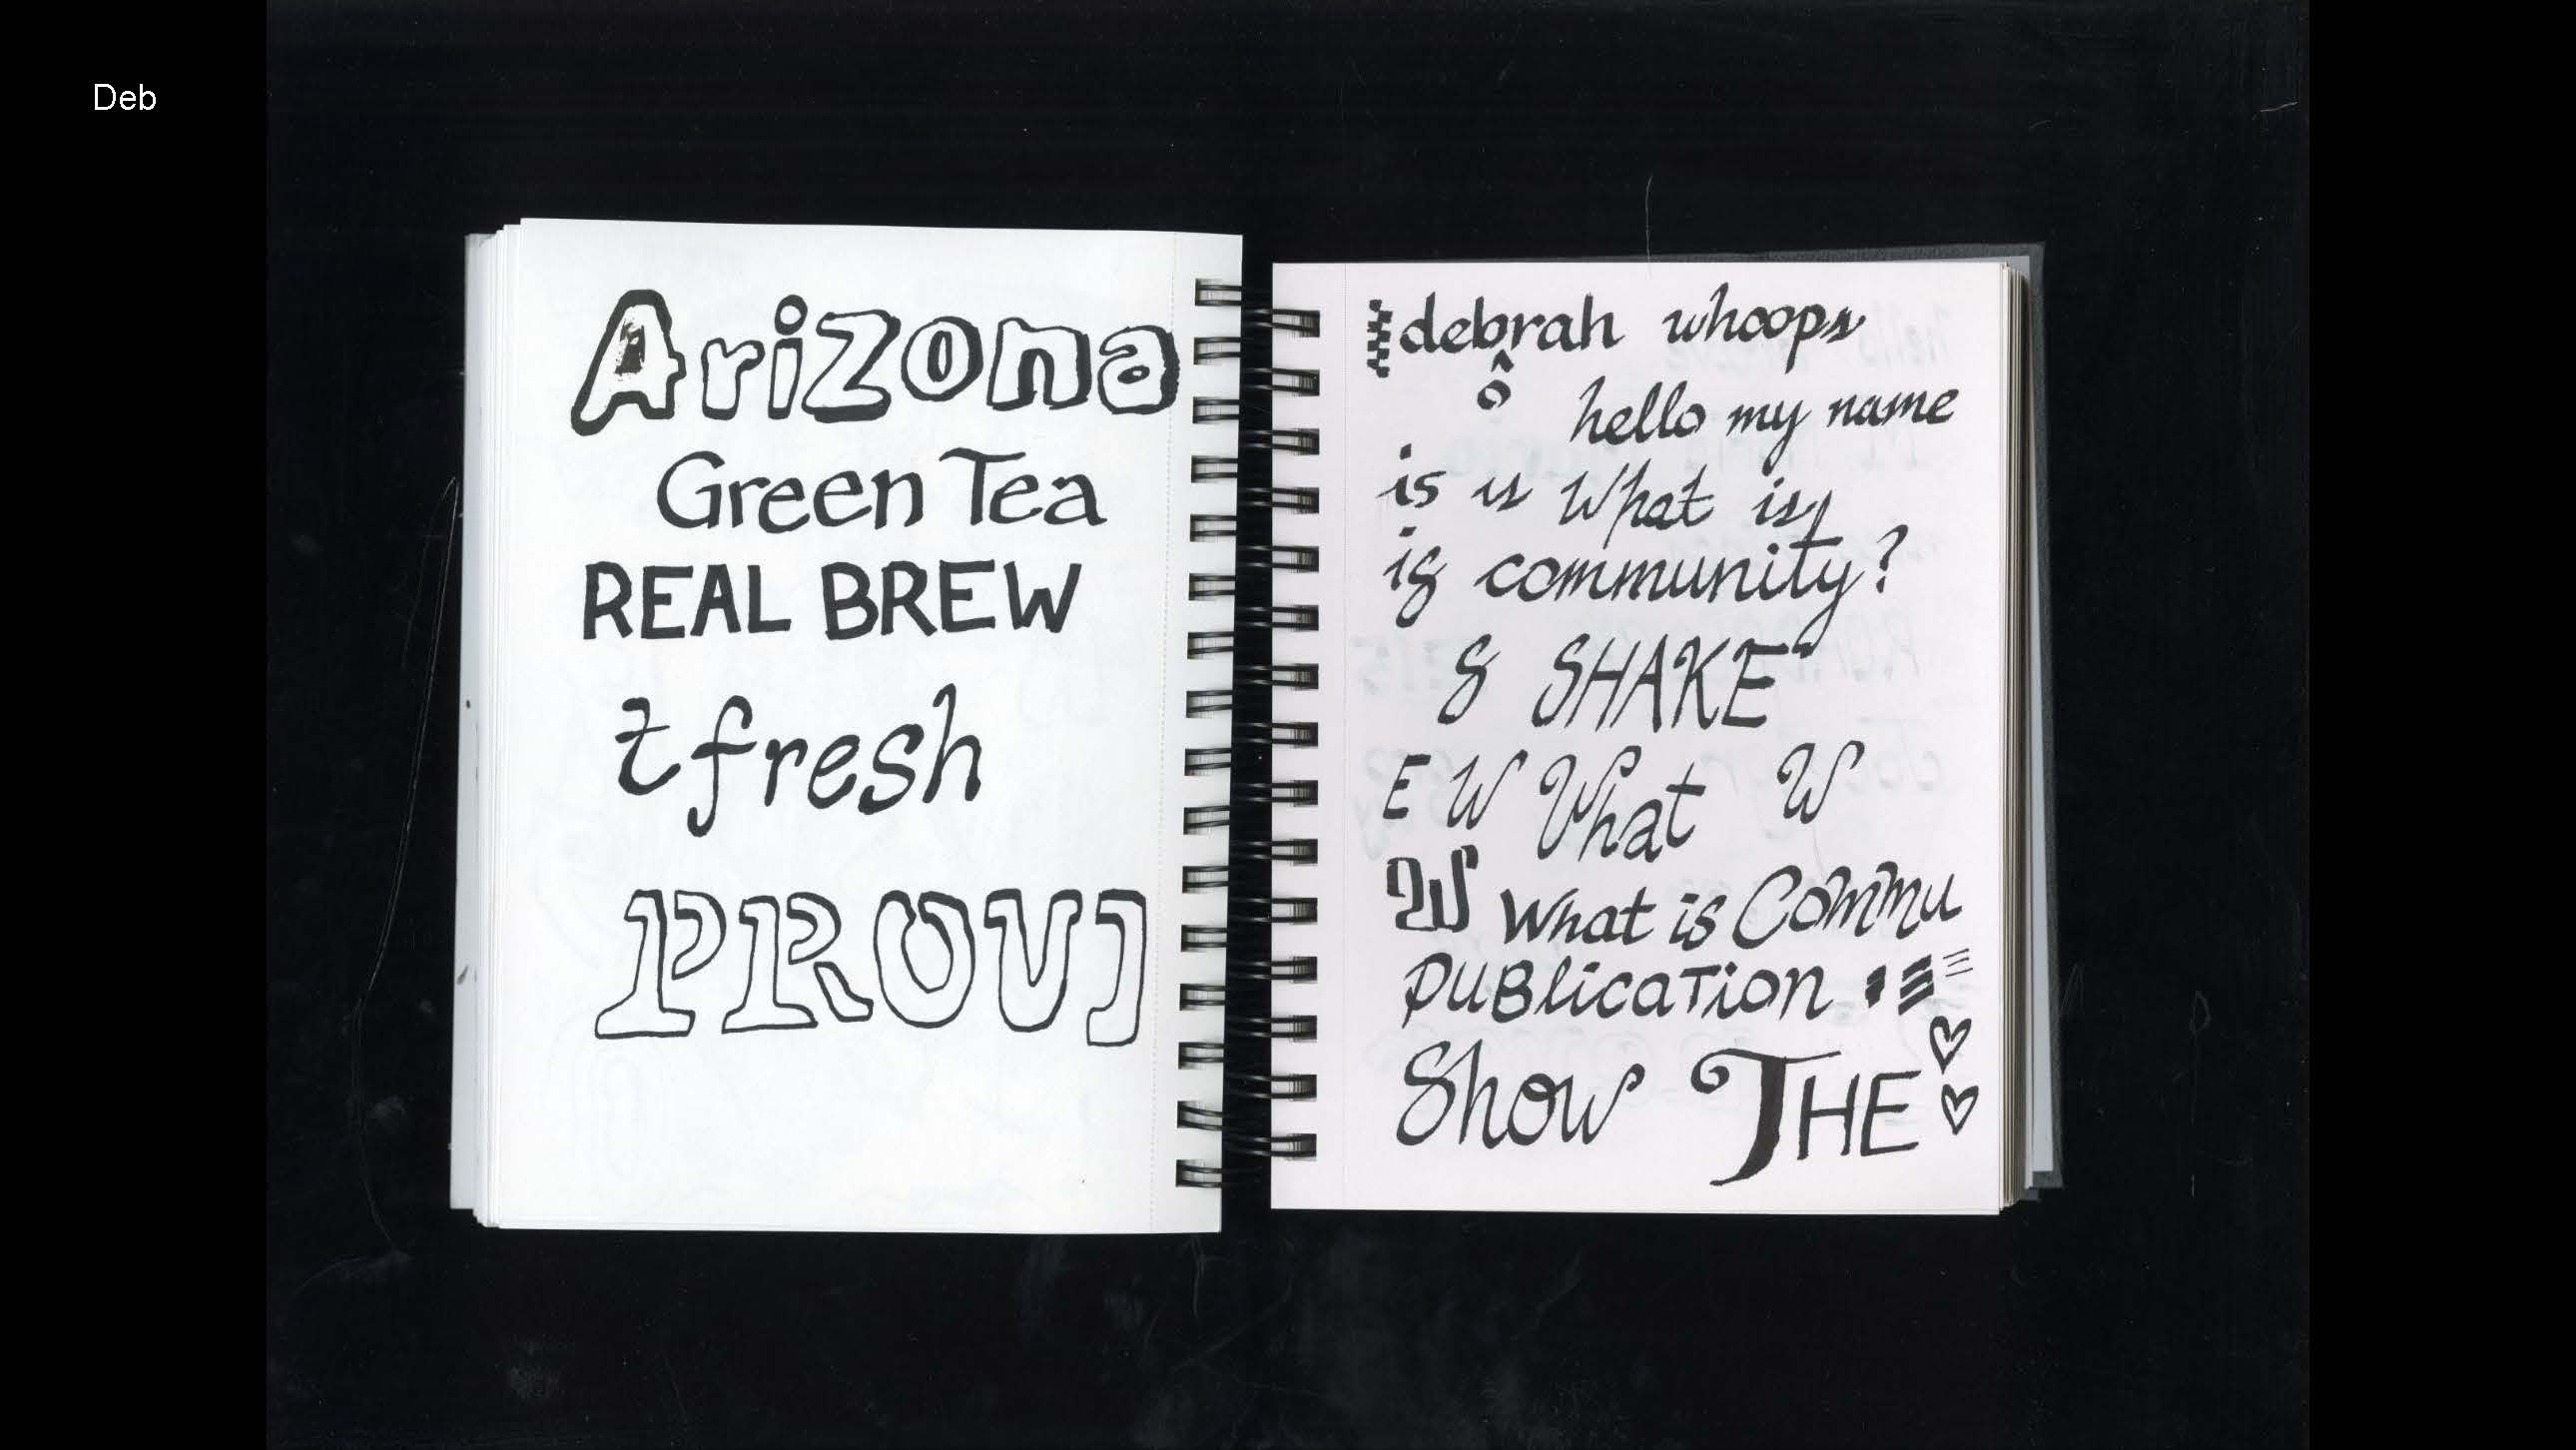 Deb
Arizona
Green Tea
REAL BREW
t fresh
PROVI
debrah whoops
^
o
hello my name
is is What is,
is community?
S SHAKE
E W What W
W What is Commu
PUBlicaTion
Show THE